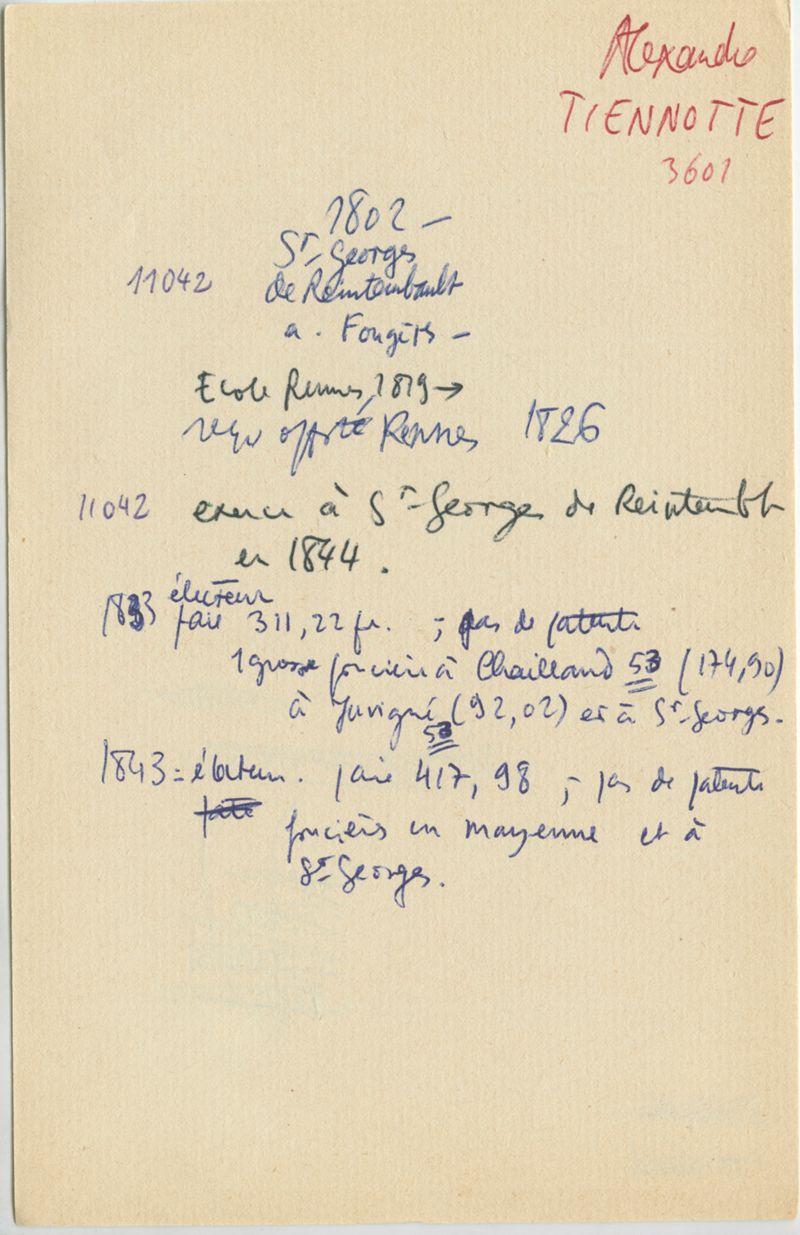 Alexandre
TIENNOTTE
3601
1802 –
St-Georges
11042 de Reintembault
a. Fougères –
Ecole Rennes, 1819 →
reçu offté Rennes 1826
11042 exerce à St-Georges de Reintemblt
en 1844.
électeur
1833 paie 311,22 fr. ; pas de patente
1 grosse foncière à Chailland 53 (174,90)
à Juvigné (92,02) et à St-Georges.
53
1843 = électeur. paie 417,98 ; – pas de patente
foncières en Mayenne et à
St-Georges.